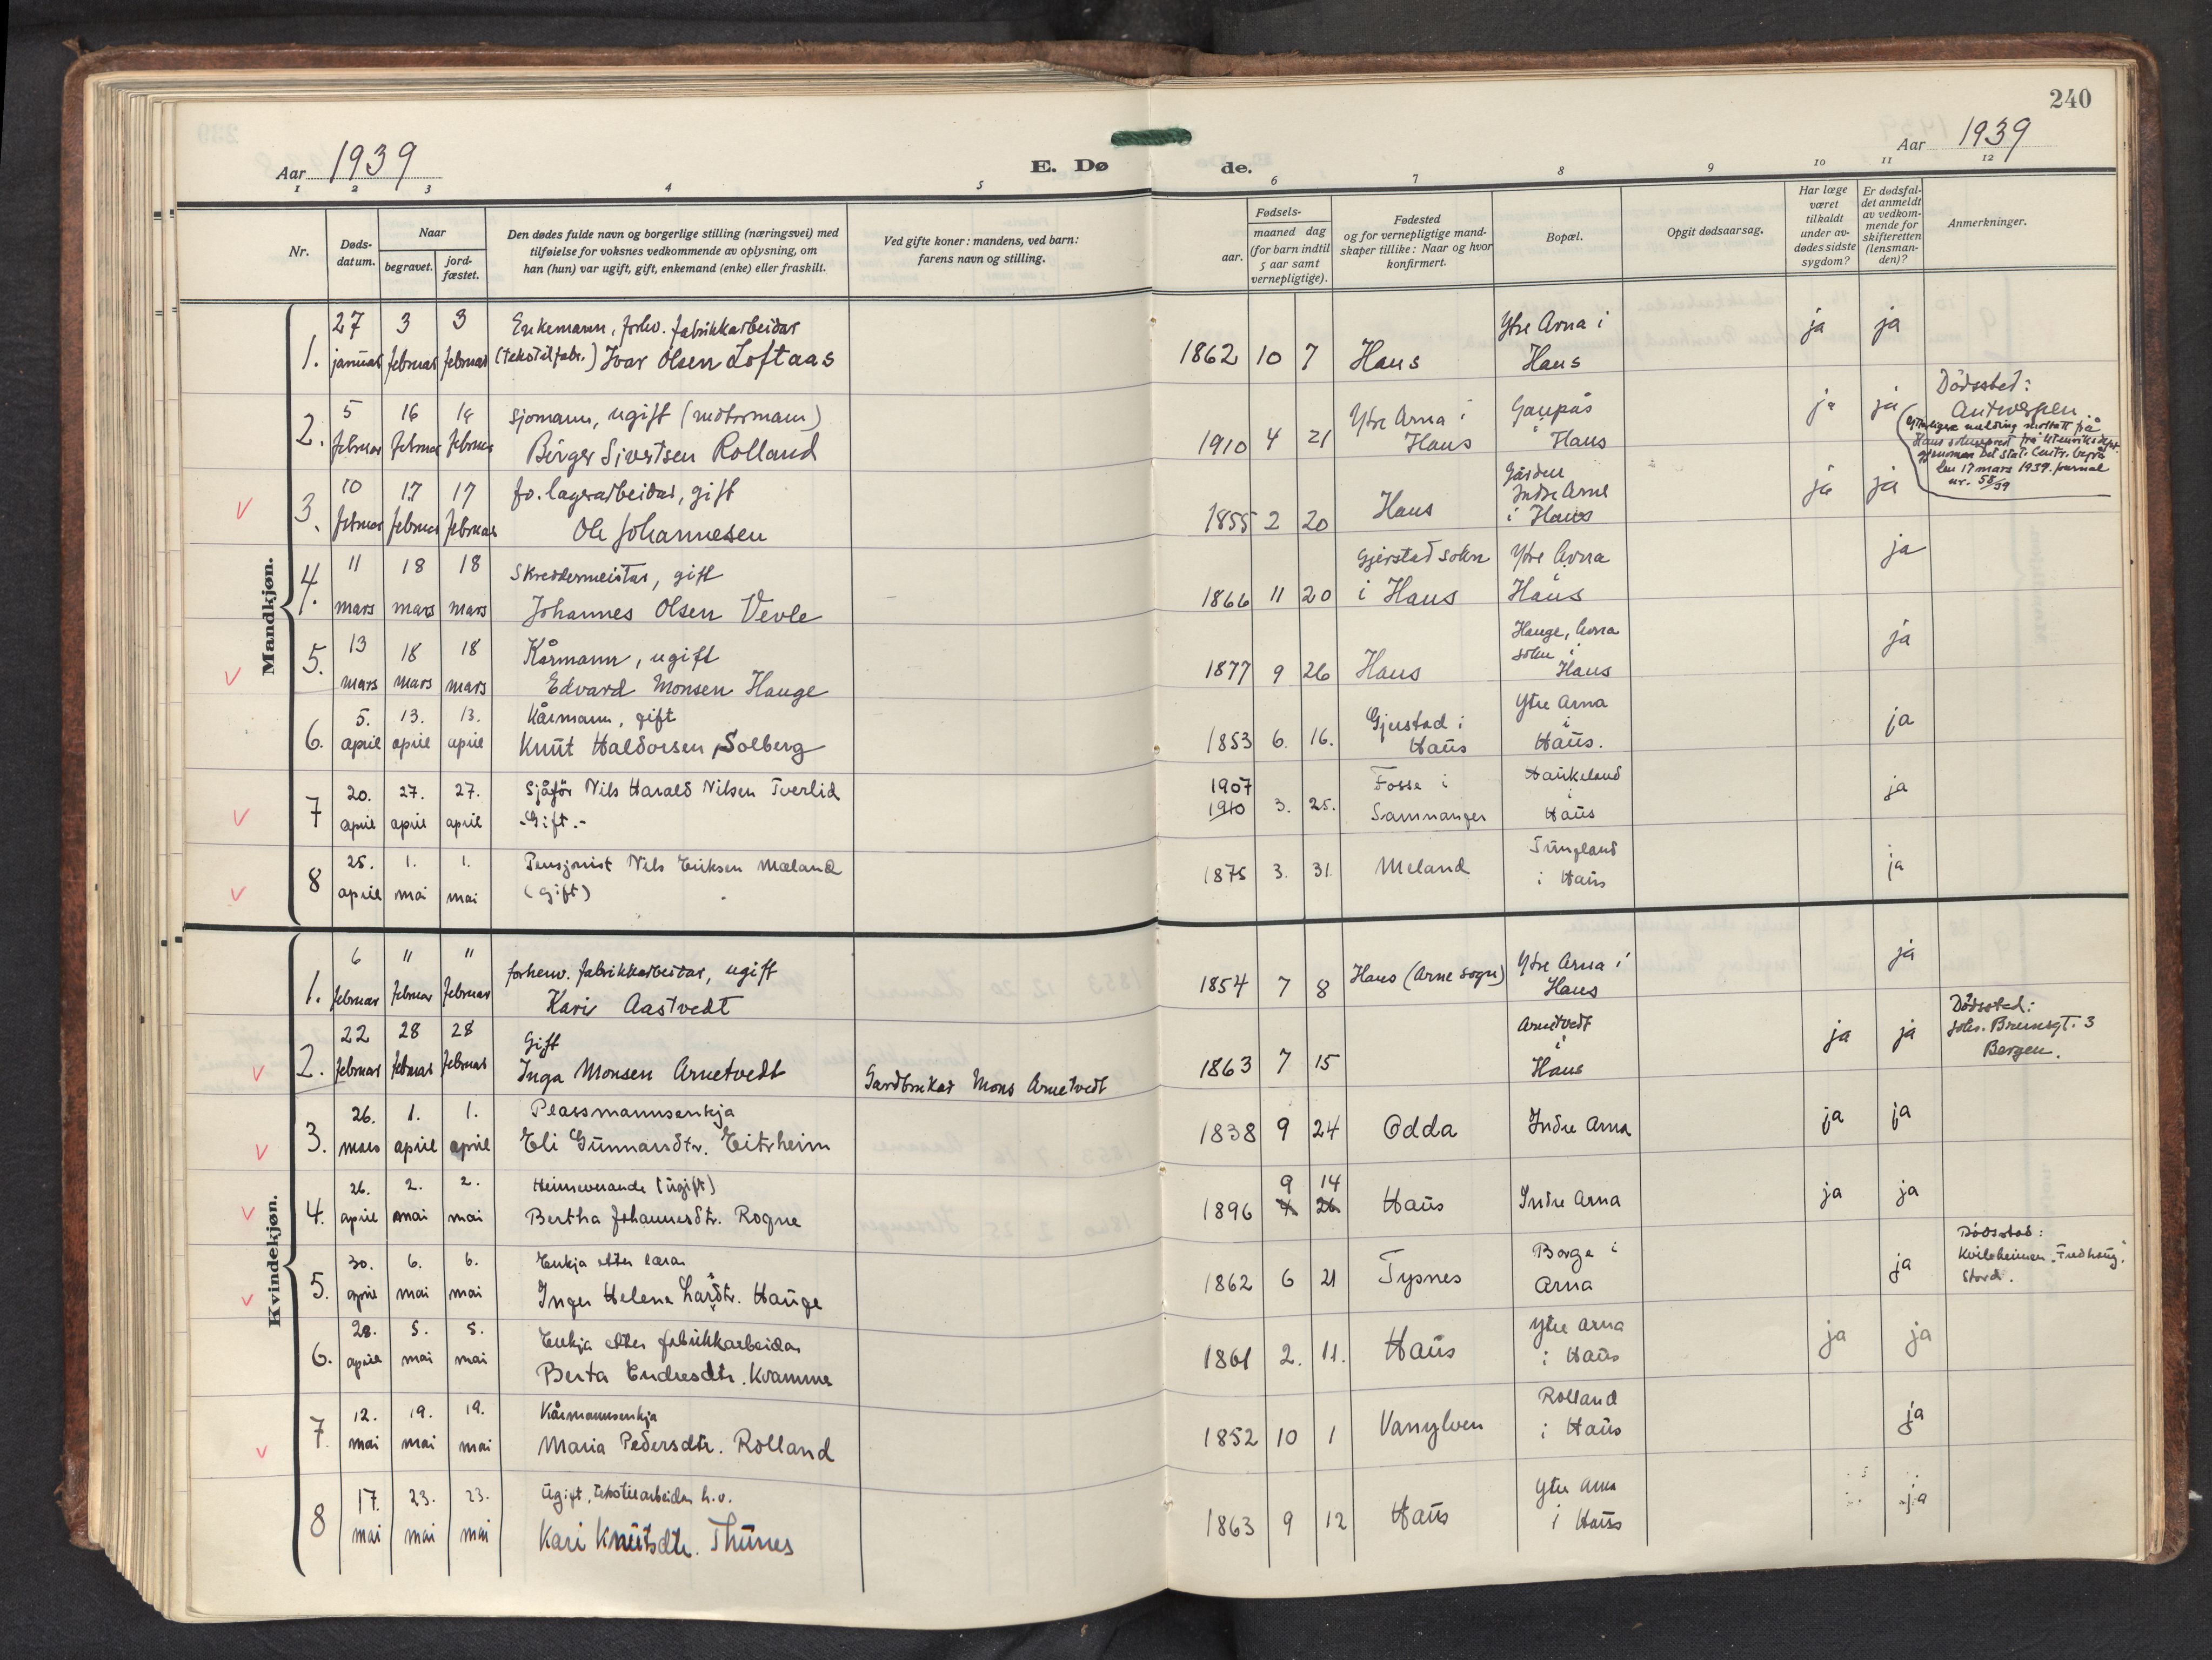 240
Aar 1939
E. Døde.
Aar 1939
1 2 3 4 5 6 7 8 9 10 11 12
Nr.
Døds-
datum.
Naar
begravet.
jord-
fæstet.
Den dødes fulde navn og borgerlige stilling (næringsvei) med
tilføielse for voksnes vedkommende av oplysning, om
han (hun) var ugift, gift, enkemand (enke) eller fraskilt.
Ved gifte koner: mandens, ved barn:
farens navn og stilling.
Fødsels-
aar.
maaned dag
(for barn indtil
5 aar samt
vernepligtige).
Fødested
og for vernepligtige mand-
skaper tillike: Naar og hvor
konfirmert.
Bopæl.
Opgit dødsaarsag.
Har læge
været
tilkaldt
under av-
dødes sidste
sygdom?
Er dødsfal-
det anmeldt
av vedkom-
mende for
skifteretten
(lensman-
den)?
Anmerkninger.
Mandkjøn.
27 3 3 Enkemann, forhv. fabrikkarbeidar Ytre Arna i ja ja
1. januar februar februar (tekstilfabr.) Ivar Olsen Loftaas 1862 10 7 Haus Haus
5 16 16 Sjømann, ugift (motormann) Ytre Arna i Gaupås ja ja
2. februar februar februar Birger Sivertsen Rolland 1910 4 21 Haus i Haus
Dødssted:
Antwerpen.
(Ytterligere melding mottatt på
Haus sokneprest frå Utenriksdept.
gjenom Det Stat. Centr. byrå
den 17 mars 1939. journal
nr. 58/39
10 17 17 fv. lagerarbeidar, gift Gården Indre Arne ja ja
3. februar februar februar Ole Johannesen 1855 2 20 Haus i Haus
11 18 18 Skreddermeistar, gift Gjerstad sokn Ytre Arna ja
4. mars mars mars Johannes Olsen Vevle 1866 11 20 i Haus i Haus
13 18 18 Kårmann, ugift Hauge, Arna sokn i ja
5. mars mars mars Edvard Monsen Hauge 1877 9 26 Haus Haus
5. 13. 13. Kårmann, gift Gjerstad i Ytre Arna i ja
6. april april april Knut Haldorsen Solberg 1853 6. 16. Haus Haus.
20. 27. 27. Sjåför Nils Harald Nilsen Tverlid 1907 Fosse i Haukeland i ja
7 april april april -Gift.- 1910 3. 25. Samnanger Haus
25. 1. 1. Pensjonist Nils Eriksen Mæland Tungland ja
8 april mai mai (gift) 1875 3. 31. Meland i Haus
Kvindekjøn.
6 " " forhenv. fabrikkarbeidar, ugift Ytre Arna i ja
1. februar februar februar Kari Aastvedt 1854 7 8 Haus (Arne sogn) Haus
22 28 28 Gift Arnetvedt i ja ja Dödssted:
2. februar februar februar Inga Monsen Arnetvedt Gardbrukar Mons Arnetvedt 1863 7 15 Haus Joh. Brunsgt. 3
Bergen.
26. 1. 1. Plassmannsenkja
3. mars april april Eli Gunnarsdtr. Eitrheim 1838 9 24 Odda Indre Arna ja ja
26. 2. 2. Heimeverande (ugift) 9 14
4. april mai mai Bertha Johannesdtr. Rogne 1896 4 26 Haus Indre Arna ja ja
30. 6. 6. Enkja etter lærar Borge i ja Dödsstad:
5. april mai mai Inger Helena Larsdtr. Hauge 1862 6 21 Tysnes Arna Kvileheimen "Fredhaug",
Stord.
28. 5. 5. Enkja etter fabrikkarbeidar Ytre Arna ja ja
6. april mai mai Berta Endresdtr. Kvamme 1861 2. 11. Haus i Haus
12. 19. 19. Kårmannsenkja Rolland ja
7. mai mai mai Maria Pedersdtr. Rolland 1852 10 1 Vanylven i Haus
17. 23. 23. Ugift, tekstilarbeidar h.v. Ytre Arna ja
8 mai mai mai Kari Knutsdtr. Thunes 1863 9 12 Haus i Haus